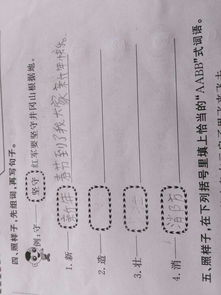 四、照样子,先组词,再写句子。
例:守 坚守 红军要坚守井冈山根据地。
1. 新 新年 春节到了我大家新年快乐。
2. 造
3. 壮
4. 消 消防
五、照样子,在下列括号里填上恰当的“AABB”式词语。